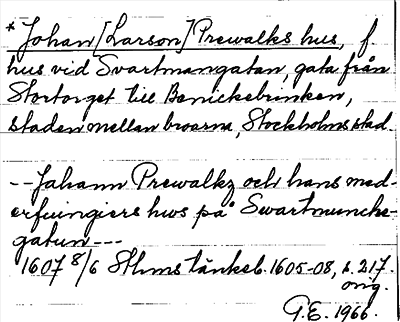 * Johan [Larson] Prewalks hus, f.
hus vid Svartmangatan, gata från
Stortorget till Benickebrinken,
staden mellan broarna, Stockholms stad.
--Johann Prewalkz och hans med-
erfuingiers hws på Swartmuncke-
gatun ---
1607 8/6 Sthms tänkeb. 1605-08, s. 217.
orig.
G.E. 1966.